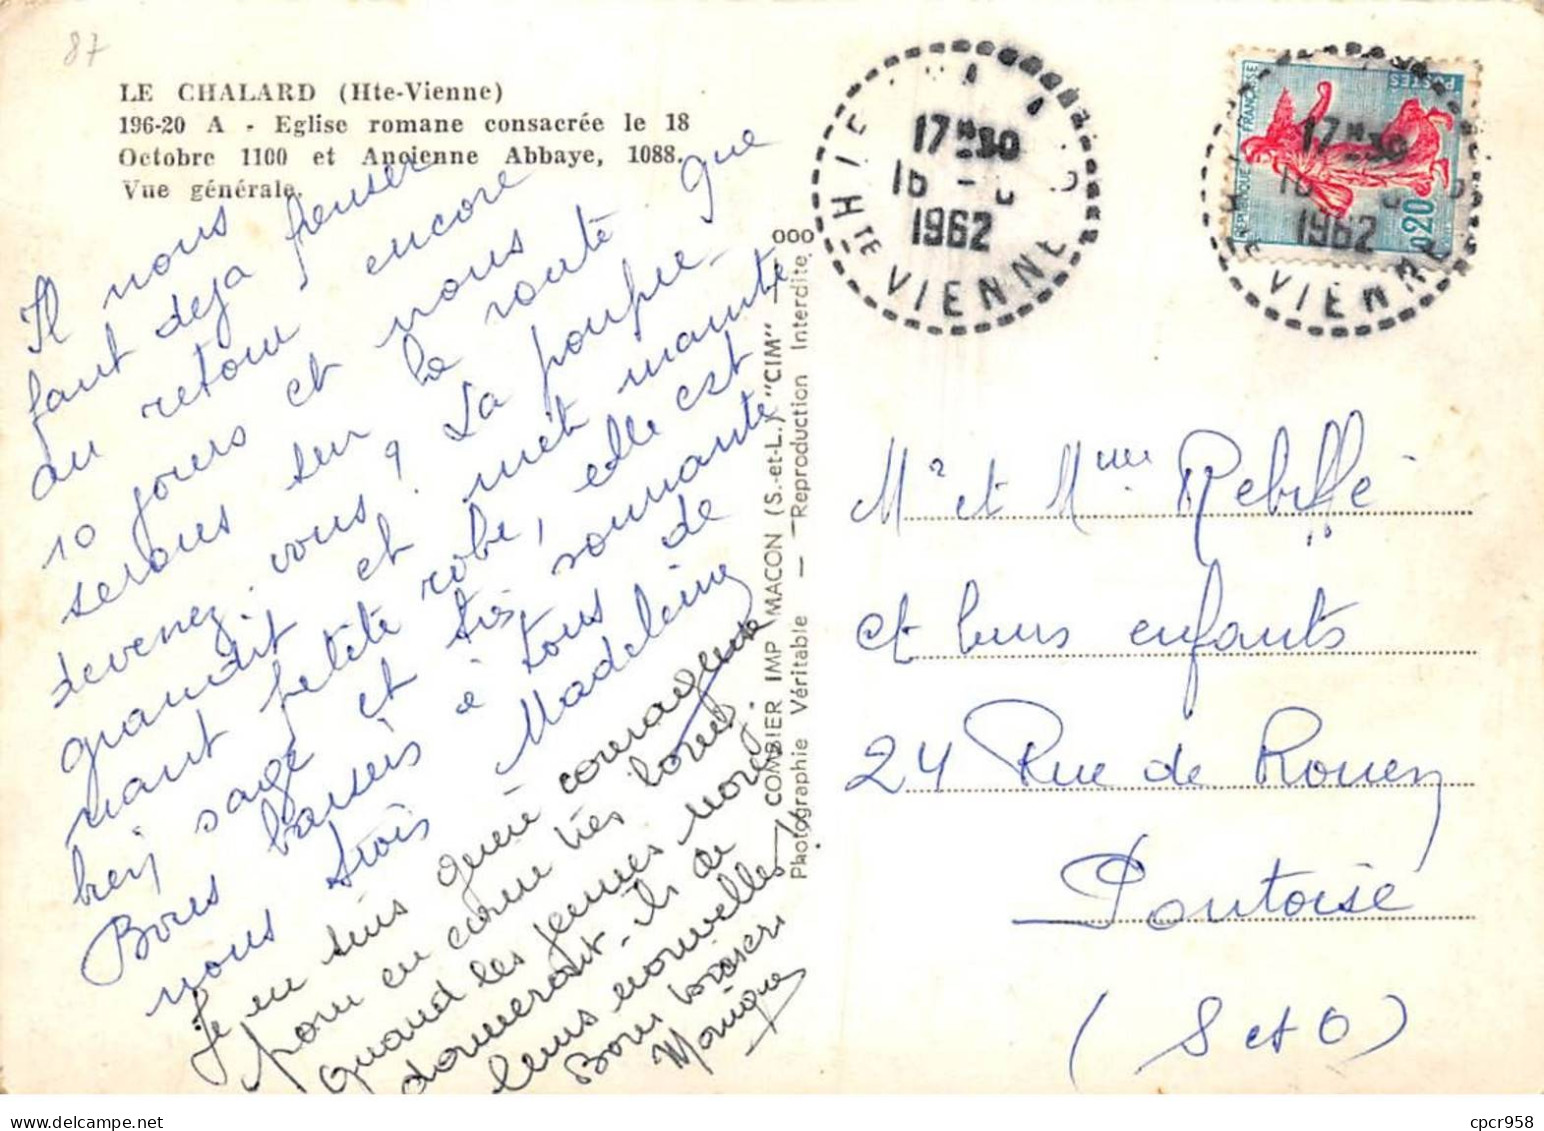 87
LE CHALARD (Hte-Vienne)
196-20 A - Eglise romane consacrée le 18
Octobre 1100 et Ancienne Abbaye, 1088.
Vue générale.
Il nous
faut deja penser
au retour, encore
10 jours et nous
serons sur la route que
devenez. vous, ? La poupée
grandit et met mainte
nant petite robe, elle est
bien sage et très souriante
Bons baisers à tous de
nous trois Madeleine
Je en suis guère courageuse
pour en corne très loret
quand les jeunes
donneront-ils de
leurs nouvelles
Bons baisers
Monique
COMBIER IMP MACON (S.-et-L.) "CIM"
Photographie Véritable — Reproduction Interdite
000
17H30
16 -
1962
HTE VIENNE
REPUBLIQUE FRANÇAISE
POSTES
0,20
17H30
16
1962
HTE VIENNE
Mr et Mme Rebiffé
et leurs enfants
24 Rue de Rouen
Pontoise
(S et O)
delcampe.net
cpcr958